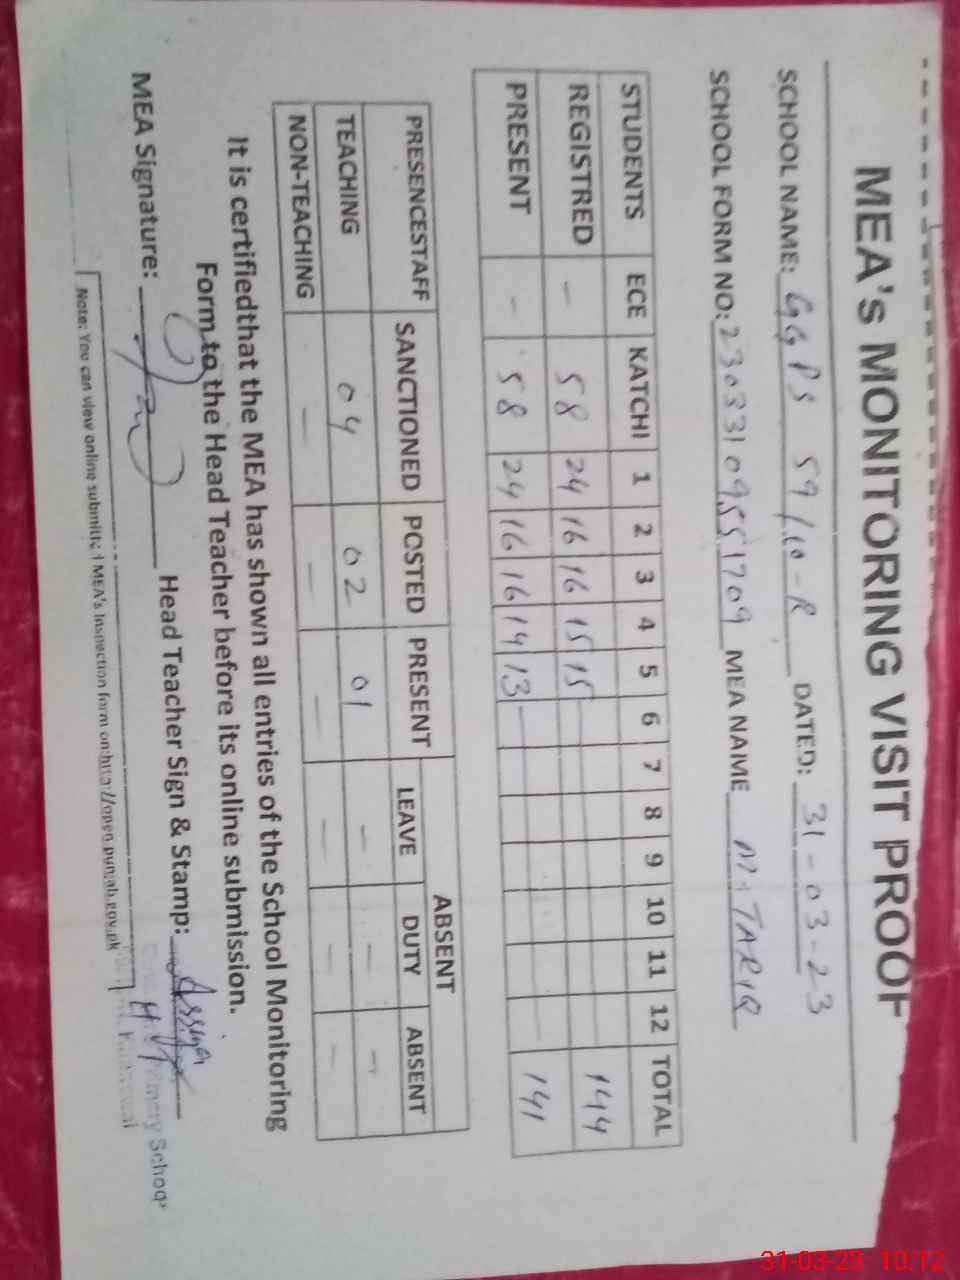 MEA's MONITORING VISIT PROOF
SCHOOL NAME: GGPS 59/10-R DATED: 31-03-23
SCHOOL FORM NO: 23033109551709 MEA NAME M. TARIQ
STUDENTS ECE KATCHI 1 2 3 4 5 6 7 8 9 10 11 12 TOTAL
REGISTRED - 58 24 16 16 15 15 144
PRESENT - 58 24 16 16 14 13 - 141
PRESENCESTAFF SANCTIONED POSTED PRESENT ABSENT
LEAVE DUTY ABSENT
TEACHING 04 02 01 - - -
NON-TEACHING - - - - - -
It is certifiedthat the MEA has shown all entries of the School Monitoring
Form to the Head Teacher before its online submission.
MEA Signature: Head Teacher Sign & Stamp:
Primary School
Note: You can view online submitted MEA's inspection form on:http://open.punjab.gov.pk
31-03-23 10:12